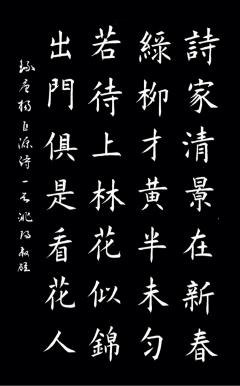 詩家清景在新春
綠柳才黃半未勻
若待上林花似錦
出門俱是看花人
唐楊巨源詩一首